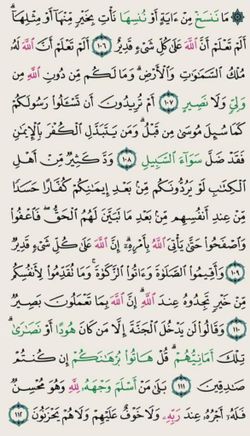 ۞ مَا نَنسَخْ مِنْ ءَايَةٍ أَوْ نُنسِهَا نَأْتِ بِخَيْرٍ مِّنْهَآ أَوْ مِثْلِهَآ ۗ
أَلَمْ تَعْلَمْ أَنَّ ٱللَّهَ عَلَىٰ كُلِّ شَىْءٍ قَدِيرٌ ١٠٦ أَلَمْ تَعْلَمْ أَنَّ ٱللَّهَ لَهُۥ
مُلْكُ ٱلسَّمَٰوَٰتِ وَٱلْأَرْضِ ۗ وَمَا لَكُم مِّن دُونِ ٱللَّهِ مِن
وَلِىٍّ وَلَا نَصِيرٍ ١٠٧ أَمْ تُرِيدُونَ أَن تَسْـَٔلُوا۟ رَسُولَكُمْ
كَمَا سُئِلَ مُوسَىٰ مِن قَبْلُ ۗ وَمَن يَتَبَدَّلِ ٱلْكُفْرَ بِٱلْإِيمَٰنِ
فَقَدْ ضَلَّ سَوَآءَ ٱلسَّبِيلِ ١٠٨ وَدَّ كَثِيرٌ مِّنْ أَهْلِ
ٱلْكِتَٰبِ لَوْ يَرُدُّونَكُم مِّنۢ بَعْدِ إِيمَٰنِكُمْ كُفَّارًا حَسَدًا
مِّنْ عِندِ أَنفُسِهِم مِّنۢ بَعْدِ مَا تَبَيَّنَ لَهُمُ ٱلْحَقُّ ۖ فَٱعْفُوا۟
وَٱصْفَحُوا۟ حَتَّىٰ يَأْتِىَ ٱللَّهُ بِأَمْرِهِۦٓ ۗ إِنَّ ٱللَّهَ عَلَىٰ كُلِّ شَىْءٍ قَدِيرٌ
١٠٩ وَأَقِيمُوا۟ ٱلصَّلَوٰةَ وَءَاتُوا۟ ٱلزَّكَوٰةَ ۚ وَمَا تُقَدِّمُوا۟ لِأَنفُسِكُم
مِّنْ خَيْرٍ تَجِدُوهُ عِندَ ٱللَّهِ ۗ إِنَّ ٱللَّهَ بِمَا تَعْمَلُونَ بَصِيرٌ
١١٠ وَقَالُوا۟ لَن يَدْخُلَ ٱلْجَنَّةَ إِلَّا مَن كَانَ هُودًا أَوْ نَصَٰرَىٰ ۗ
تِلْكَ أَمَانِيُّهُمْ ۗ قُلْ هَاتُوا۟ بُرْهَٰنَكُمْ إِن كُنتُمْ
صَٰدِقِينَ ١١١ بَلَىٰ مَنْ أَسْلَمَ وَجْهَهُۥ لِلَّهِ وَهُوَ مُحْسِنٌ
فَلَهُۥٓ أَجْرُهُۥ عِندَ رَبِّهِۦ وَلَا خَوْفٌ عَلَيْهِمْ وَلَا هُمْ يَحْزَنُونَ ١١٢